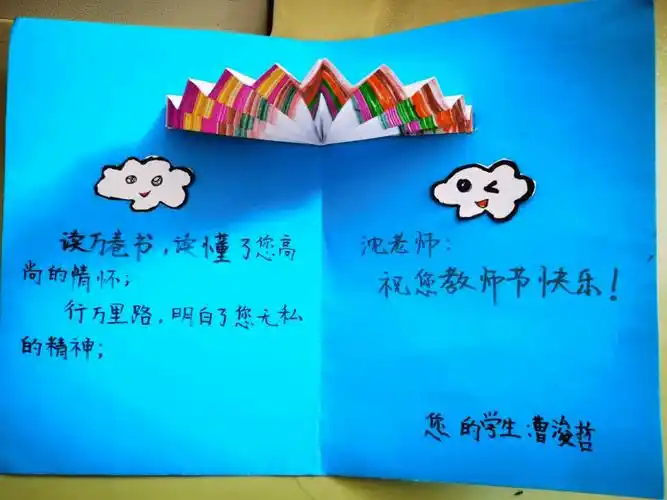 读万卷书，读懂了您高
尚的情怀；
行万里路，明白了您无私
的精神；
沈老师：
祝您教师节快乐！
您的学生曹浚哲